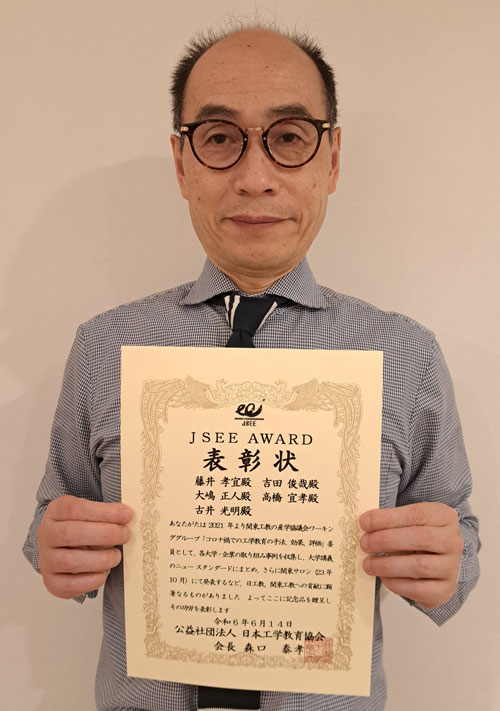 JSEE
JSEE AWARD
表彰状
藤井 孝宜殿 吉田 俊哉殿
大嶋 正人殿 高橋 宜孝殿
古井 光明殿
あなたがたは2021年より関東工教の産学協議会ワーキン
ググループ「コロナ禍での工学教育の手法、効果、評価」委
員として、各大学・企業の取り組み事例を収集し、大学講義
のニュースタンダードにまとめ、さらに関東サロン('23年
10月)にて発表するなど、日工教、関東工教への貢献に顕
著なるものがありました よってここに記念品を贈呈し
その功労を表彰します
令和6年6月14日
公益社団法人 日本工学教育協会
会長 森口 泰孝